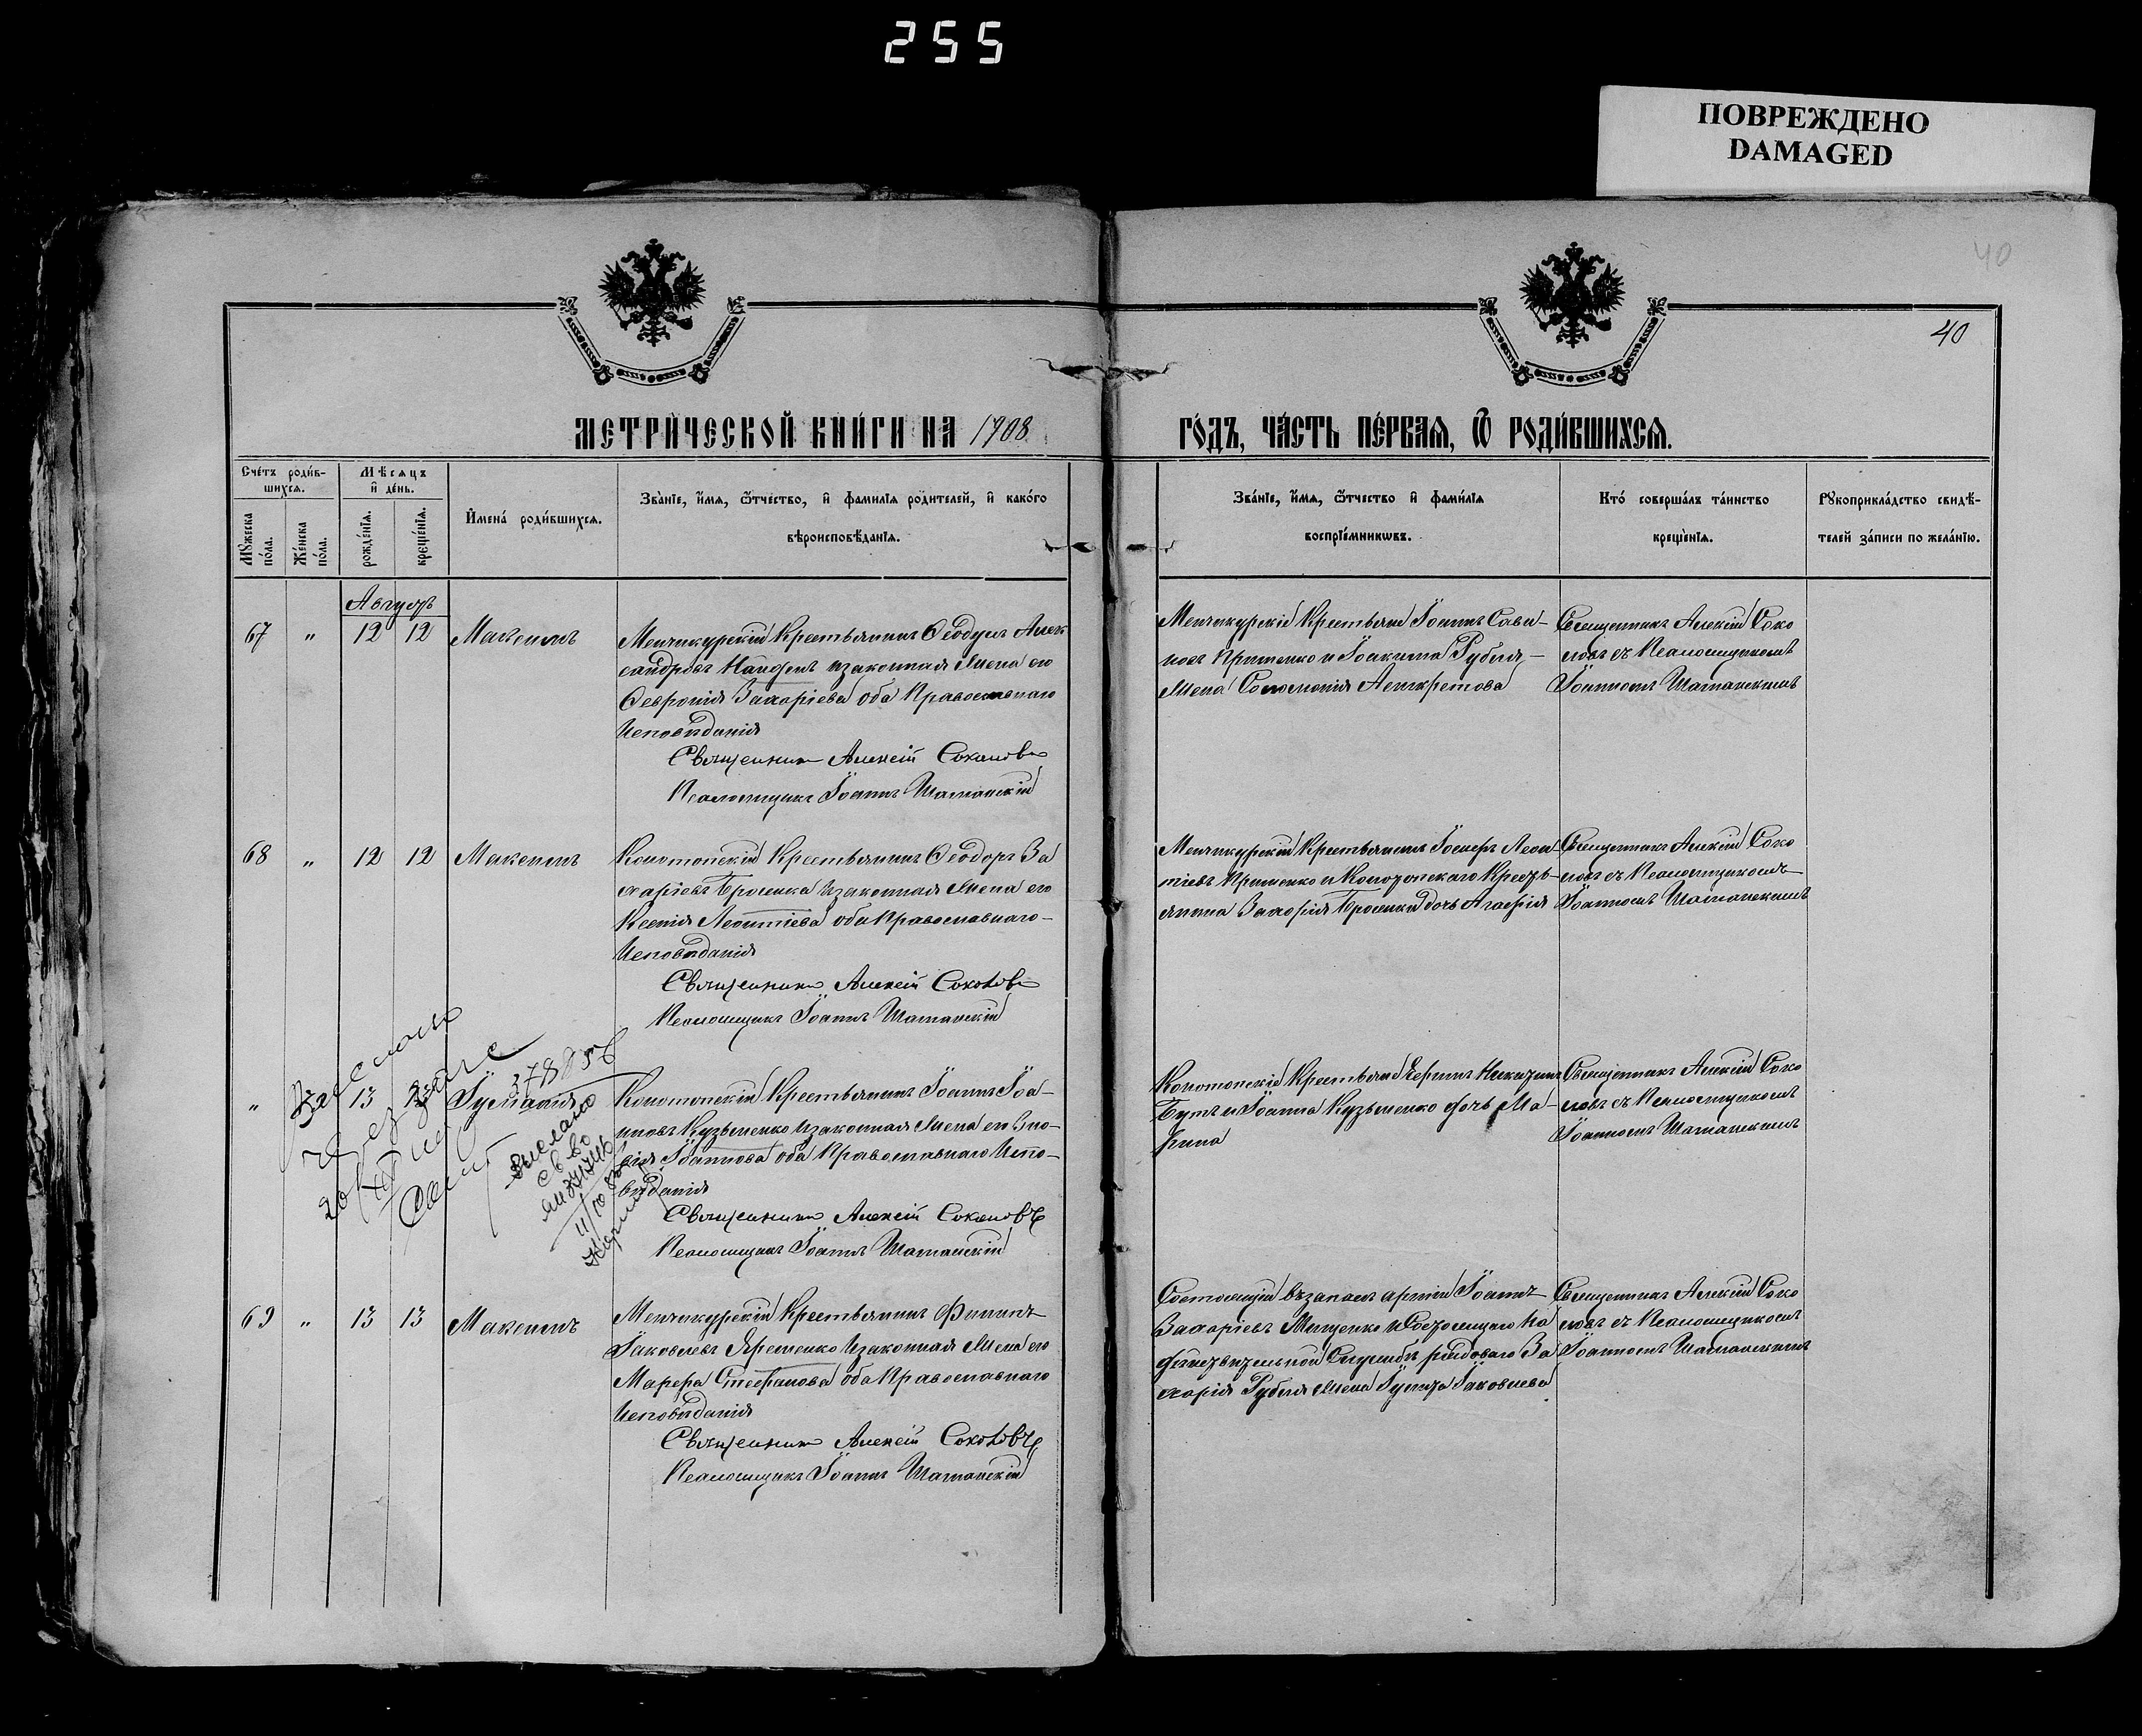 255
ПОВРЕЖДЕНО
DAMAGED
40
40
МЕТРИ́ЧЕСКОЙ КНИ́ГИ НА 1908
ГО́ДЪ, ЧА́СТЬ ПЕ́РВАѦ, Ѿ РОДИ́ВШИХСѦ.
Сче́тъ роди́в-
шихсѧ.
Мѣсѧцъ
и҆ де́нь.
Мꙋжеска
по́ла.
Же́нска
по́ла.
рожде́нїѧ.
креще́нїѧ.
И҆мена́ роди́вшихсѧ.
Зва́нїе, и҆́мѧ, ѻ҆́тчество, и҆ фамилїѧ роди́телей, и҆ како́го
вѣроисповѣ́данїѧ.
Зва́нїе, и҆́мѧ, ѻ҆́тчество и҆ фами́лїѧ
воспрїе́мникѡвъ.
Кто́ соверша́лъ та́инство
креще́нїѧ.
Рꙋкоприкла́дство свидѣ́-
телей за́писи по жела́нїю.
Августъ
67 " 12 12 Максимъ
Менчикурскій Крестьянинъ Ѳеодулъ Алек
сандровъ и законная жена его
Февронія Захаріева оба Православнаго
Исповѣданія
Священникъ Алексій Соколовъ
Псаломщикъ Іоаннъ Шаманскій
Менчикурскіе Крестьяне Іоаннъ Сави-
новъ и Іоакима Рубля
жена Соломонія
Священникъ Алексій Соко
ловъ съ Псаломщикомъ
Іоанномъ Шаманскимъ
68 " 12 12 Максимъ
Конотопскій Крестьянинъ Ѳеодоръ За
харіевъ и законная жена его
Ксенія Леонтіева оба Православнаго
Исповѣданія
Священникъ Алексій Соколовъ
Псаломщикъ Іоаннъ Шаманскій
Менчикурскій Крестьянинъ Іосифъ Леон
тіевъ и Конотопскаго Кресть-
янина Захарія дочь Агафія
Священникъ Алексій Соко
ловъ съ Псаломщикомъ
Іоанномъ Шаманскимъ
" 13 Іуліанія
Конотопскій Крестьянинъ Іоаннъ Іоа-
нновъ Кузьменко и законная жена его Зно-
вія Іоаннова оба Православнаго Испо-
вѣданія
Священникъ Алексій Соколовъ
Псаломщикъ Іоаннъ Шаманскій
Конотопскіе Крестьяне
и Іоанна Кузьменко дочь Ма-
рина
Священникъ Алексій Соко
ловъ съ Псаломщикомъ
Іоанномъ Шаманскимъ
69 " 13 13 Максимъ
Менчикурскій Крестьянинъ Филиппъ
Іаковлевъ Яременко и законная жена его
Марфа Стефанова оба Православнаго
Исповѣданія
Священникъ Алексій Соколовъ
Псаломщикъ Іоаннъ Шаманскій
Состоящій въ запасѣ арміи Іоаннъ
Захаріевъ Мищенко и Состоящаго на
дѣйствительной Службѣ рядоваго За
харія Рубля жена Іулита Іаковлева
Священникъ Алексій Соко
ловъ съ Псаломщикомъ
Іоанномъ Шаманскимъ